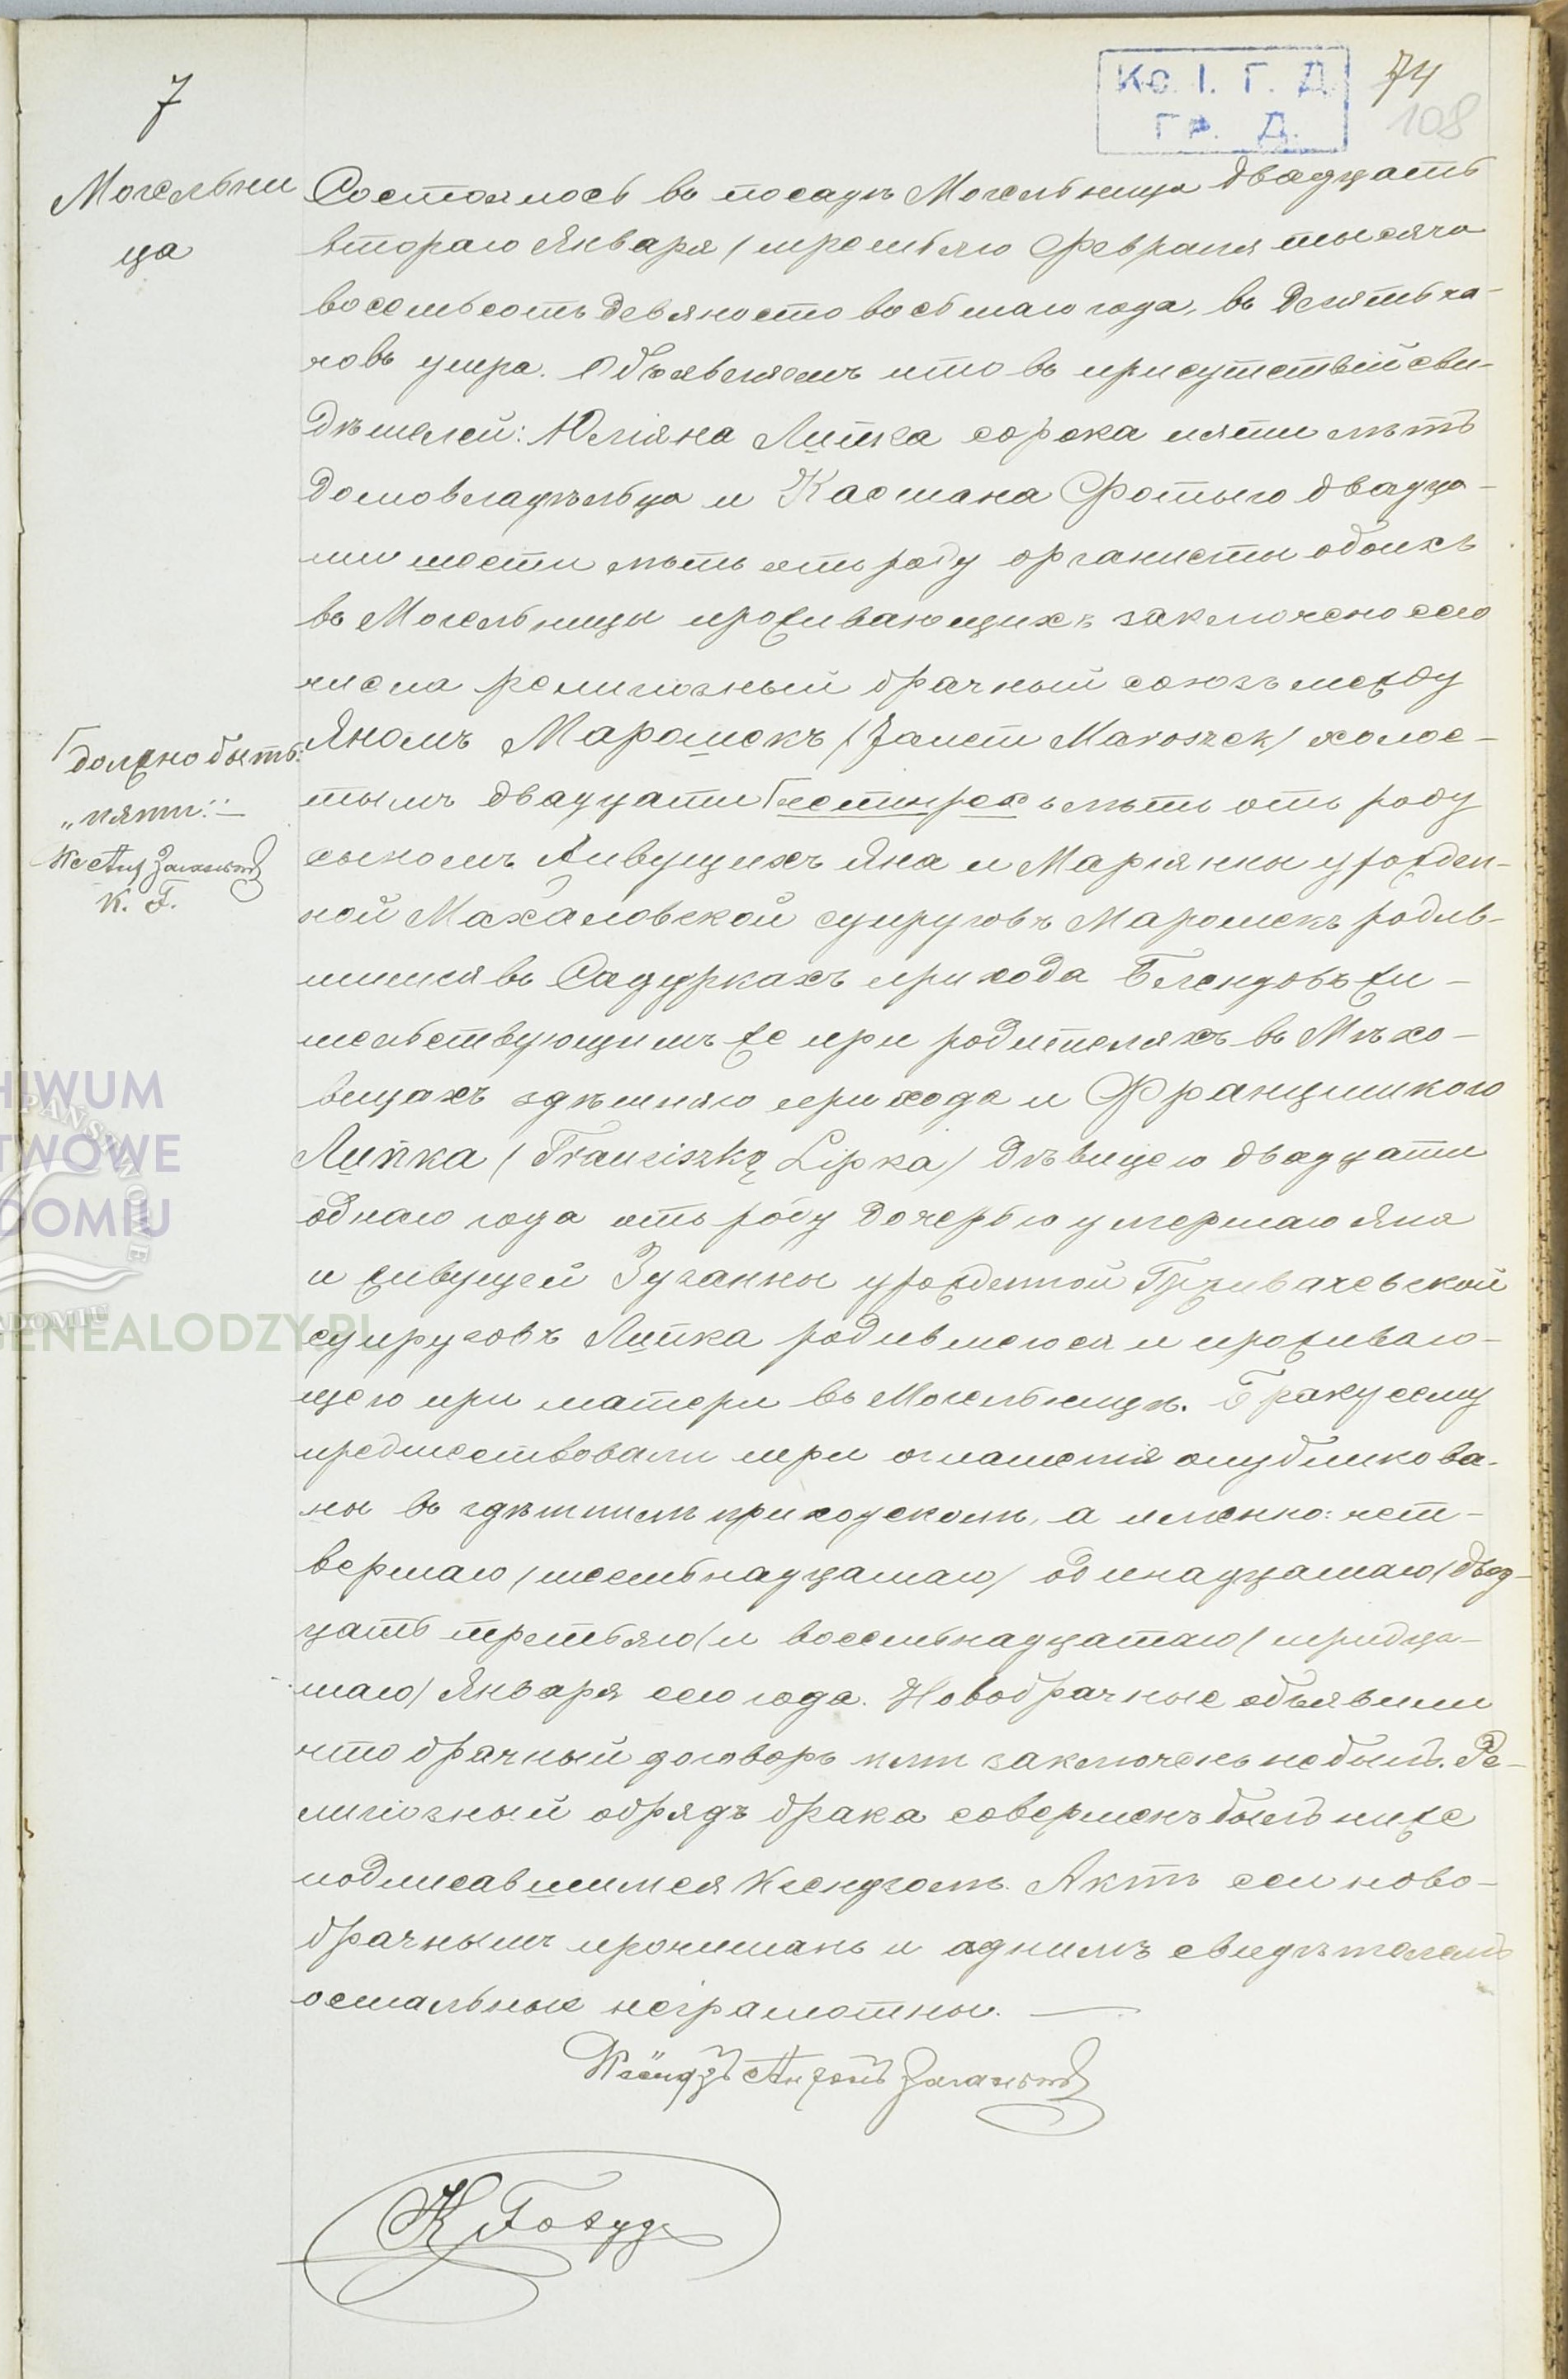 7
Кс. I. Г. Д.
Гр. Д.
74
108
Могельни
ца
Состоялось въ посадѣ Могельница двадцать
втораго Января /третьяго Февраля тысяча
восемьсотъ девяносто восьмаго года, въ десять ча-
совъ утра. Объявляемъ что въ присутствіи сви-
дѣтелей: Юліяна Липка сорока пяти лѣтъ
домовладѣльца и Каетана двадца-
ти шести лѣтъ отъ роду органисты обоихъ
въ Могельницы проживающихъ заключено сего
числа религіозный брачный союзъ между
Яномъ Марошекъ /Janem Maroszek/ холос-
тымъ двадцати лѣтъ отъ роду
должно быть:
„пяти“:—
Кс Ант
К. Г.
сыномъ живущихъ Яна и Маріянны урожден-
ной Махаловской супруговъ Марошекъ родив-
шимся въ Садуркахъ прихода Блендовъ жи-
тельствующимъ же при родителяхъ въ Мѣхо-
вицахъ здѣшняго прихода и Францишкою
Липка / Franciszką Lipka/ дѣвицею двадцати
однаго года отъ роду дочерью умершаго Яна
и живущей Зузанны урожденной
супруговъ Липка родившеюся и проживаю-
щею при матери въ Могельницѣ. Браку сему
предшествовали три оглашенія опубликова-
ны въ здѣшнимъ приходскомъ, а именно: чет-
вертаго /шестьнадцатаго/ одинадцатаго /двад-
цать третьяго/ и восемьнадцатаго / тридца-
таго/ Января сего года. Новобрачные объявили
что брачный договоръ ими заключенъ не былъ. Ре-
лигіозный обрядъ брака совершенъ былъ ниже
подписавшимся Ксендзомъ. Актъ сеи ново-
брачнымъ прочитанъ и однимъ свидѣтелемъ
остальные неграмотны. —
Ксёндзъ Антонъ
К
HIWUM
PAŃSTWOWE
TWOWE
DOMIU
RADOMIU
GENEALODZY.PL